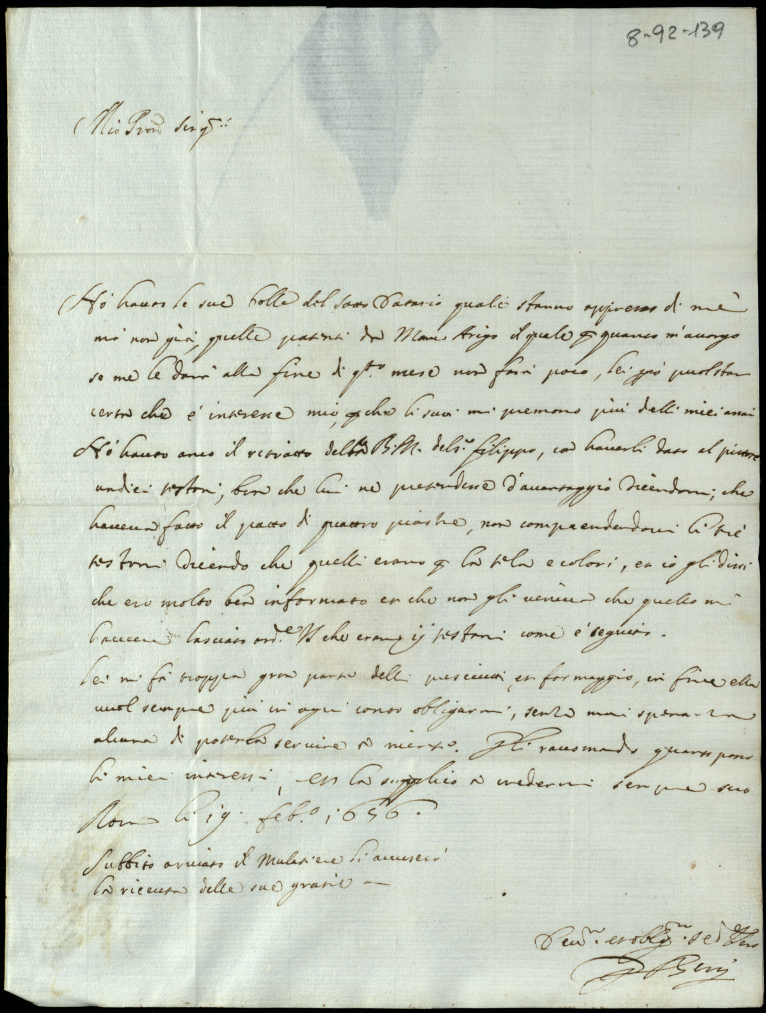 8-92-139
Mio Pron Sing.
Hò hauto le sue bolle del Datario quali stanno appresso di me
mà non già quelle patenti da Mons. Arigo il quale p quanto m'acorgo
se me le darà alla fine di qto mese non farà poco, lei può star
certa che è interesse mio, che li suoi mi premono più delli miei assai
Hò hauto anco il ritratto della B.M. del S. Filippo, con hauerli dato al pittore
undici testoni, ben che lui ne pretendesse d'auantaggio dicendomi, che
haueua fatto il patto di quattro piastre, non comprendendoui li trè
testoni dicendo che quelli erano p la tela e colori, et io gli dissi
che ero molto ben informato et che non gli ueniua che quello mi
haueua lasciato ord.e VS che erano ij testoni come è seguito.
Lei mi fà troppa gran parte delli et formaggio, in fine ella
uuol sempre più in ogni conto obligarmi, senza mai speranza
alcuna di poterla seruire à niente. Gli racomando quanto posso
li miei interessi, et la supplico à credermi sempre suo
Roma li 19 feb.o 1656.
Subbito arriuato il Mulatiere li accuserò
la riceuta delle sue gratie —
Deu.mo et oblig.mo se